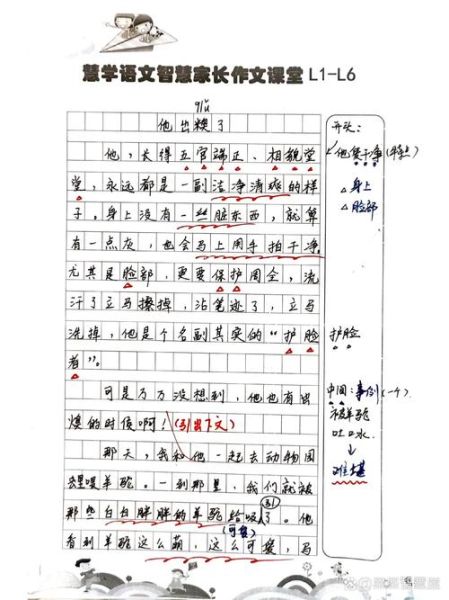 慧学语文智慧家长作文课堂 L1-L6
他出糗了
他,长得五官端正、相貌堂
堂,永远都是一副洁净清爽的样
子。身上没有一丝脏东西,就算
有一点灰,也会马上用手拍干净。
尤其是脸部,更要保护周全,流
汗了立马擦掉,沾笔迹了,立马
洗掉,他是个名副其实的“护脸
者”。
可是万万没想到,他也有出
糗的时候啊!(引出下文)
那天,我和他一起去动物园
里喂羊驼。一到那里,我们就被
那些白白胖胖的羊驼给吸引了。他
(可爱)
看到羊驼这么萌,这么可爱,马
开头:
他很干净(特点)
身上
脸部
护脸
中间:事例(一个)
被羊驼
吐口水
↓
难堪